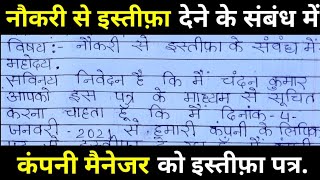 नौकरी से इस्तीफ़ा देने के संबंध में
विषय:- नौकरी से इस्तीफा के संबंध में
महोदय.
सविनय निवेदन है कि मैं चंदन कुमार
आपको इस पत्र के माध्यम से सूचित
करना चाहता हूं कि मैं दिनांक-4-
जनवरी -2021 से हमारी कंपनी के लिपिक
कंपनी मैनेजर को इस्तीफ़ा पत्र.